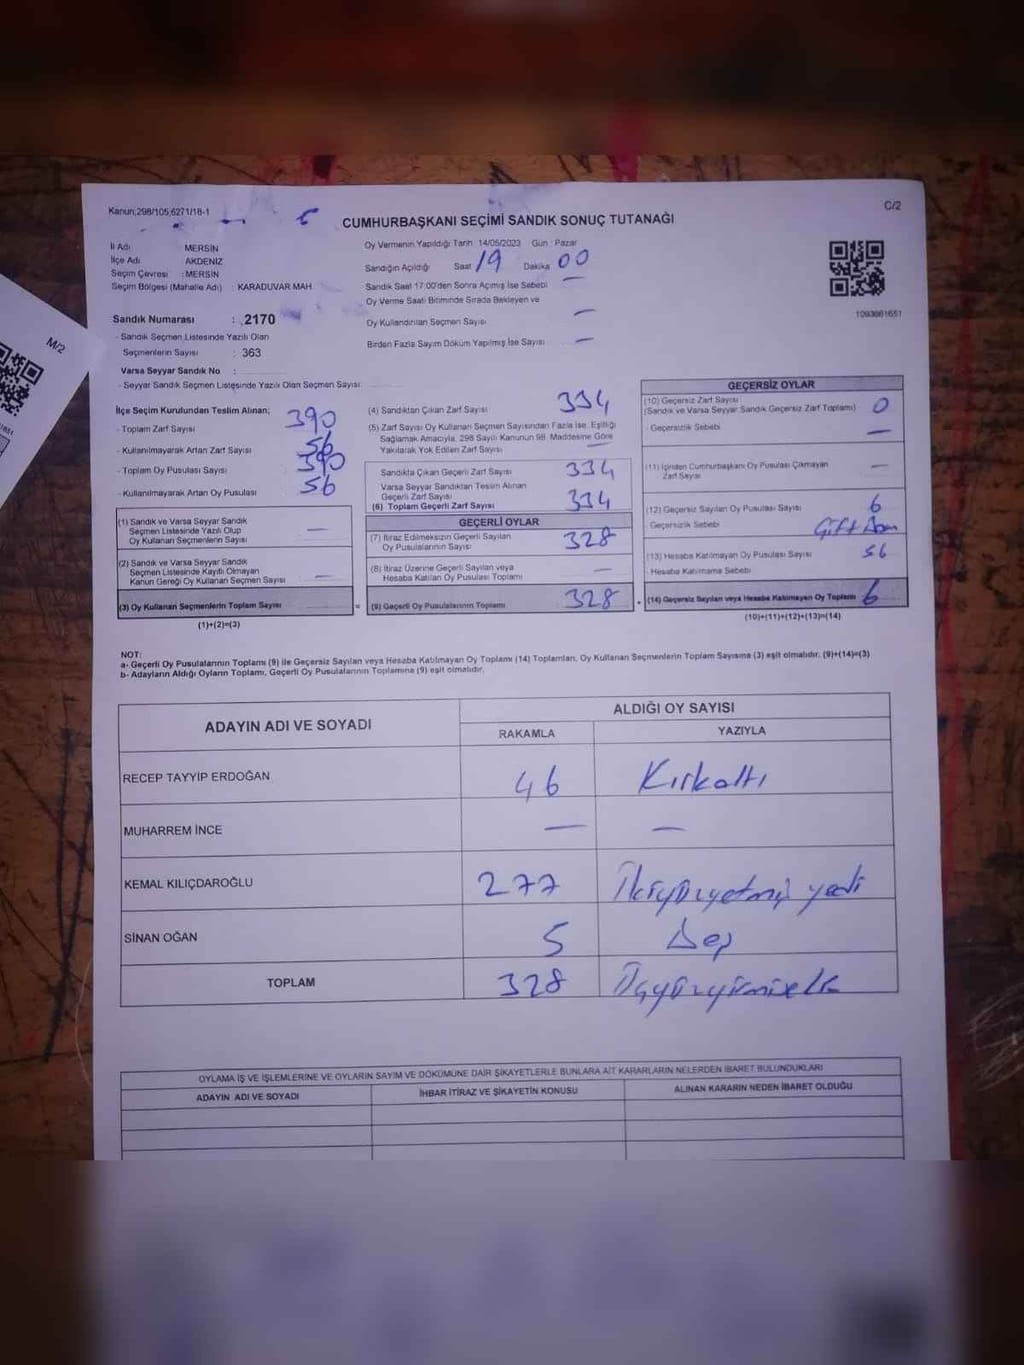 Kanun,298/105,6271/18-1
C/2
CUMHURBAŞKANI SEÇİMİ SANDIK SONUÇ TUTANAĞI
İl Adı : MERSİN
İlçe Adı AKDENİZ
Seçim Çevresi : MERSİN
Seçim Bölgesi (Mahalle Adı) : KARADUVAR MAH
Oy Vermenin Yapıldığı Tarih 14/05/2023 Gün : Pazar
Sandığın Açıldığı Saat 19 Dakika 00
Sandık Saat 17:00'den Sonra Açımış İse Sebebi —
Oy Verme Saati Bitiminde Sırada Bekleyen ve
Oy Kullandırılan Seçmen Sayısı —
Birden Fazla Sayım Döküm Yapılmış İse Sayısı —
1093661651
M/2
Sandık Numarası : 2170
- Sandık Seçmen Listesinde Yazılı Olan
Seçmenlerin Sayısı : 363
Varsa Seyyar Sandık No :
- Seyyar Sandık Seçmen Listesinde Yazılı Olan Seçmen Sayısı
İlçe Seçim Kurulundan Teslim Alınan;
- Toplam Zarf Sayısı 390
- Kullanılmayarak Artan Zarf Sayısı 56
- Toplam Oy Pusulası Sayısı 390
- Kullanılmayarak Artan Oy Pusulası 56
(1) Sandık ve Varsa Seyyar Sandık
Seçmen Listesinde Yazılı Olup
Oy Kullanan Seçmenlerin Sayısı —
(2) Sandık ve Varsa Seyyar Sandık
Seçmen Listesinde Kayıtlı Olmayan
Kanun Gereği Oy Kullanan Seçmen Sayısı —
(3) Oy Kullanan Seçmenlerin Toplam Sayısı
=
(1)+(2)=(3)
(4) Sandıktan Çıkan Zarf Sayısı 334
(5) Zarf Sayısı Oy Kullanan Seçmen Sayısından Fazla İse, Eşitliği
Sağlamak Amacıyla, 298 Sayılı Kanunun 98. Maddesine Göre
Yakılarak Yok Edilen Zarf Sayısı —
Sandıkta Çıkan Geçerli Zarf Sayısı 334
Varsa Seyyar Sandıktan Teslim Alınan
Geçerli Zarf Sayısı
(6) Toplam Geçerli Zarf Sayısı 334
GEÇERLİ OYLAR
(7) İtiraz Edilmeksizin Geçerli Sayılan
Oy Pusulalarının Sayısı 328
(8) İtiraz Üzerine Geçerli Sayılan veya
Hesaba Katılan Oy Pusulası Toplamı —
(9) Geçerli Oy Pusulalarının Toplamı 328
GEÇERSİZ OYLAR
(10) Geçersiz Zarf Sayısı
(Sandık ve Varsa Seyyar Sandık Geçersiz Zarf Toplamı) 0
- Geçersizlik Sebebi —
(11) İçinden Cumhurbaşkanı Oy Pusulası Çıkmayan
Zarf Sayısı —
(12) Geçersiz Sayılan Oy Pusulası Sayısı 6
- Geçersizlik Sebebi
(13) Hesaba Katılmayan Oy Pusulası Sayısı 56
- Hesaba Katılmama Sebebi
(14) Geçersiz Sayılan veya Hesaba Katılmayan Oy Toplamı 6
(10)+(11)+(12)+(13)=(14)
NOT:
a- Geçerli Oy Pusulalarının Toplamı (9) ile Geçersiz Sayılan veya Hesaba Katılmayan Oy Toplamı (14) Toplamları, Oy Kullanan Seçmenlerin Toplam Sayısına (3) eşit olmalıdır. (9)+(14)=(3)
b- Adayların Aldığı Oyların Toplamı, Geçerli Oy Pusulalarının Toplamına (9) eşit olmalıdır.
ADAYIN ADI VE SOYADI
ALDIĞI OY SAYISI
RAKAMLA YAZIYLA
RECEP TAYYİP ERDOĞAN 46 Kırkaltı
MUHARREM İNCE — —
KEMAL KILIÇDAROĞLU 277 İkiyüzyetmiş yedi
SİNAN OĞAN 5 Beş
TOPLAM 328 Üçyüzyirmisekiz
OYLAMA İŞ VE İŞLEMLERİNE VE OYLARIN SAYIM VE DÖKÜMÜNE DAİR ŞİKAYETLERLE BUNLARA AİT KARARLARIN NELERDEN İBARET BULUNDUKLARI
ADAYIN ADI VE SOYADI İHBAR İTİRAZ VE ŞİKAYETİN KONUSU ALINAN KARARIN NEDEN İBARET OLDUĞU